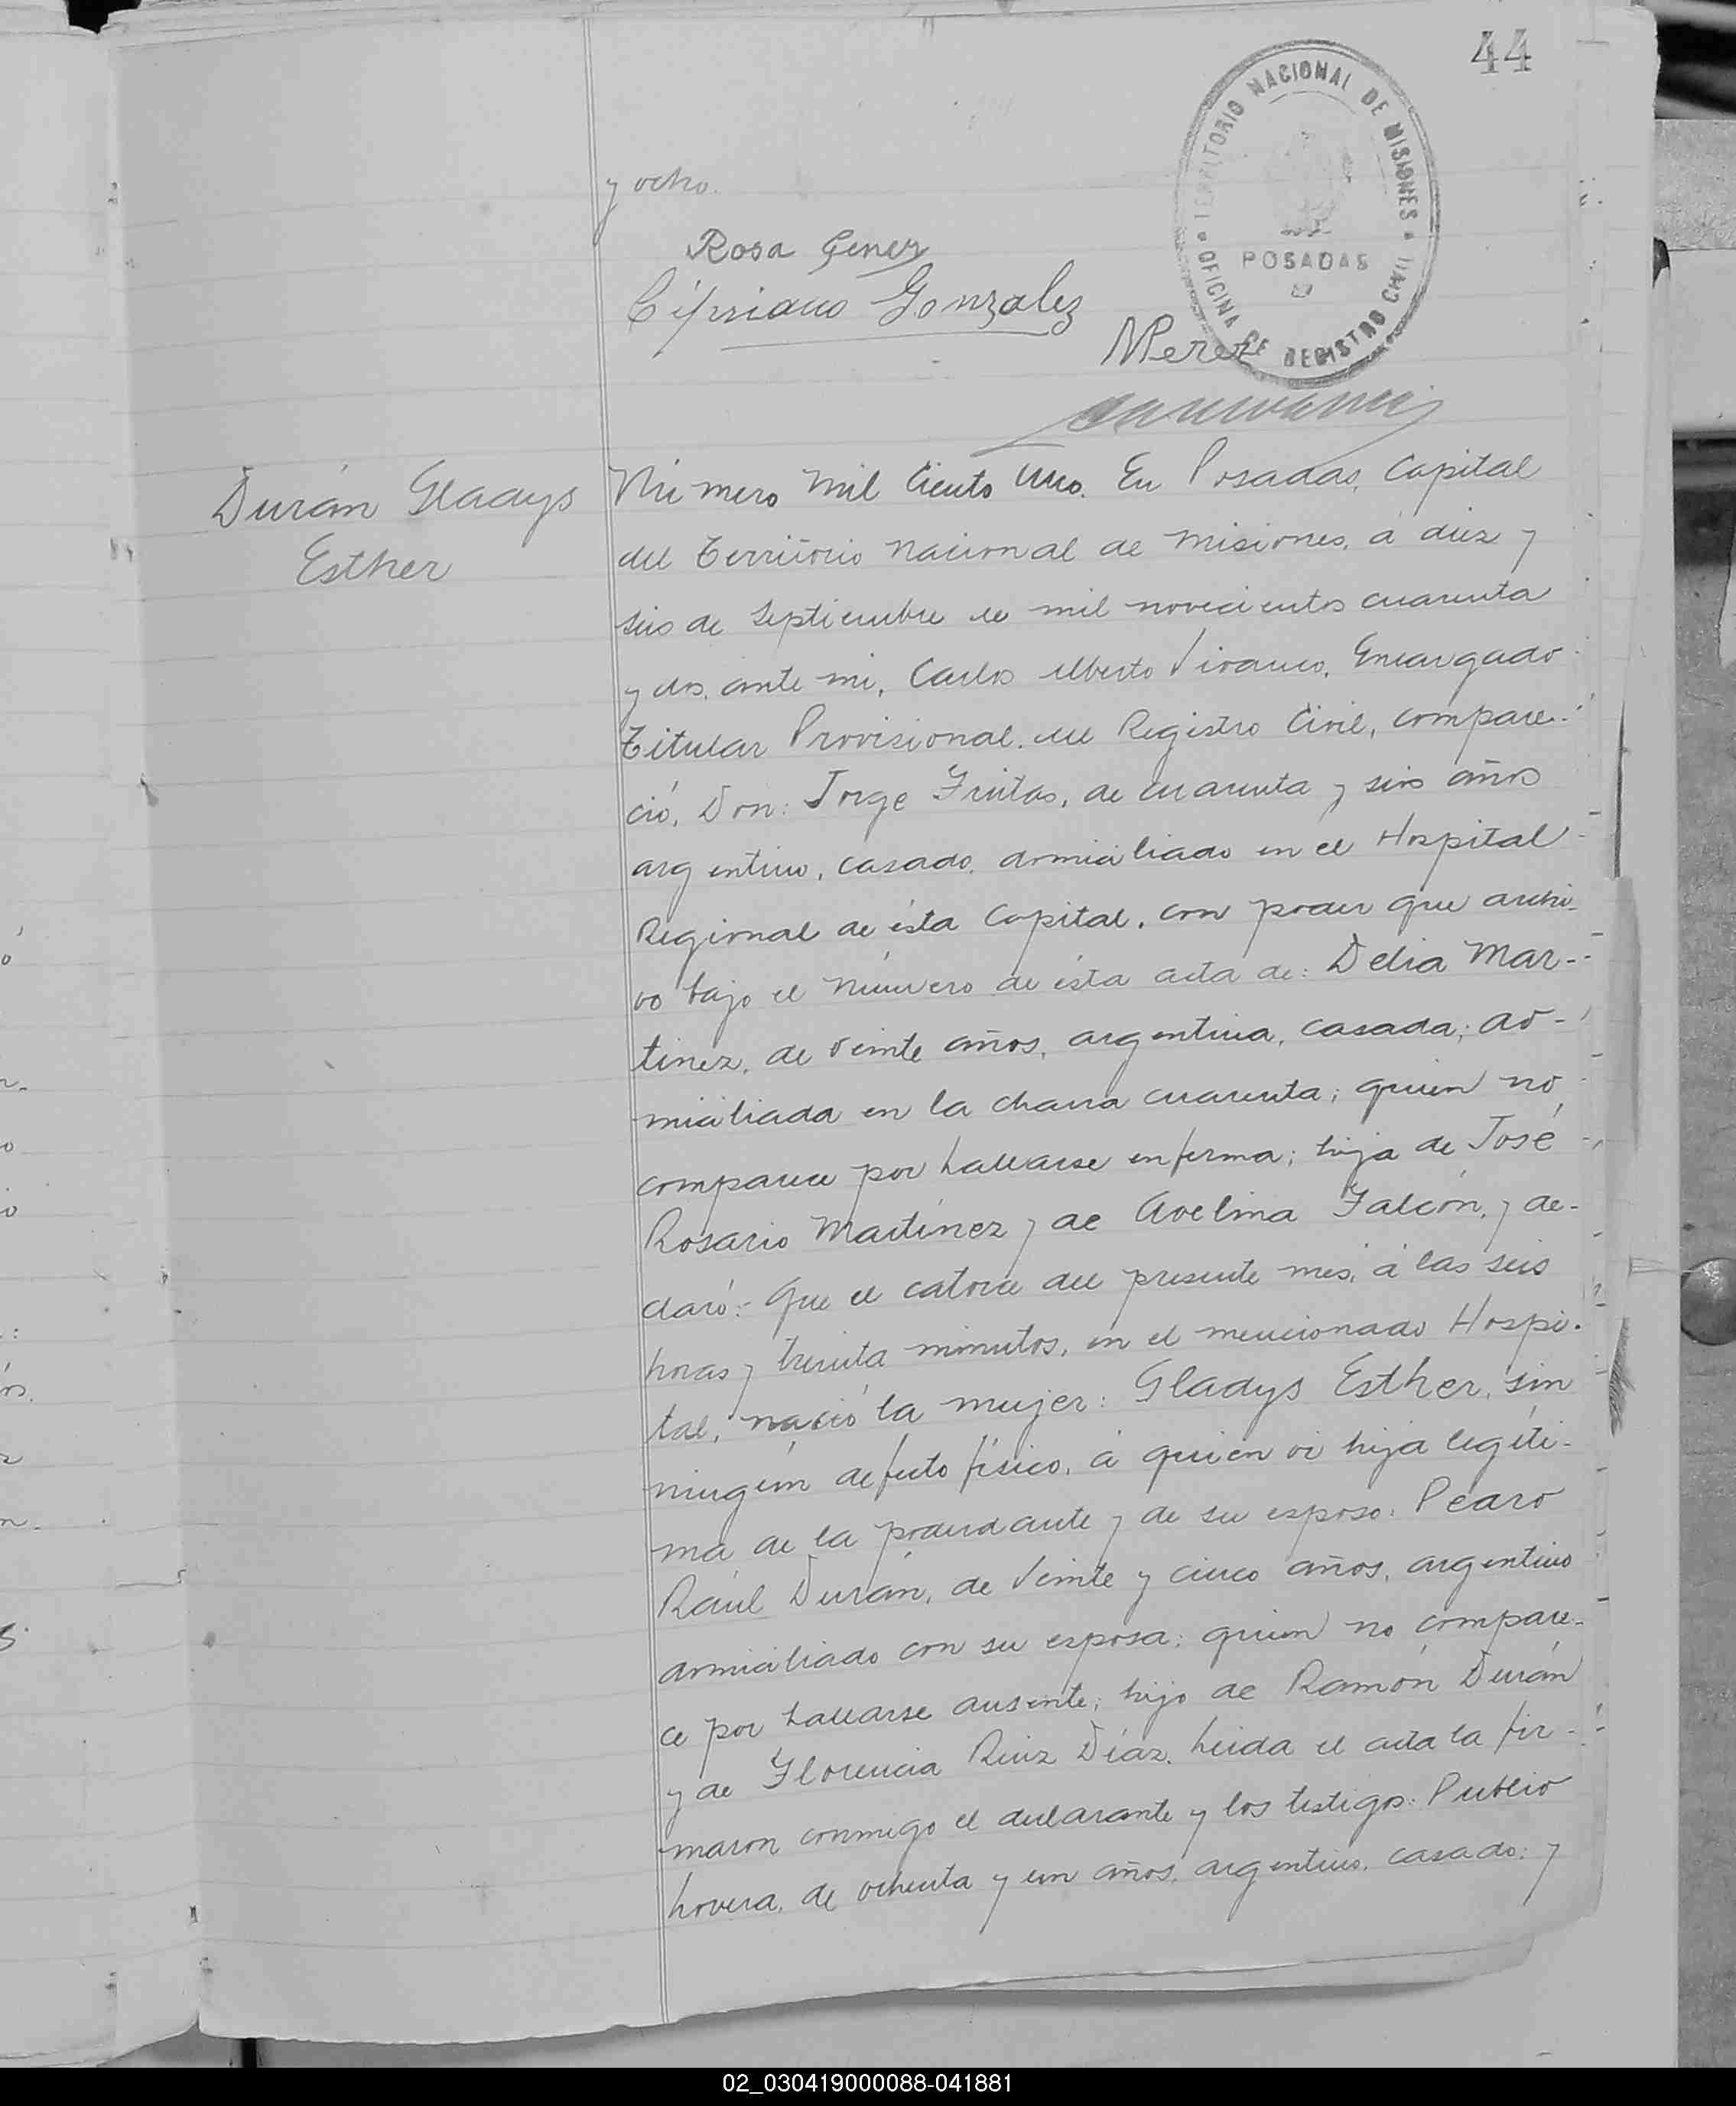 44
TERRITORIO NACIONAL DE MISIONES
POSADAS
OFICINA DE REGISTRO CIVIL
y ocho.
Rosa Genez
Cipriano Gonzalez
MPerez
Durán Gladys
Esther
Número mil ciento uno. En Posadas, Capital
del Territorio Nacional de Misiones, á diez y
seis de Septiembre de mil novecientos cuarenta
y dos, ante mi, Carlos Alberto Vivanco, Encargado
Titular Provisional del Registro Civil, compare-
ció, Don: Jorge Freitas, de cuarenta y seis años
argentino, casado, domiciliado en el Hospital
Regional de ésta Capital, con poder que archi-
vo bajo el número de ésta acta de: Delia Mar-
tinez, de veinte años, argentina, casada, do-
miciliada en la chacra cuarenta; quien no
comparece por hallarse enferma; hija de José
Rosario Martínez y de Avelina Falcón, y de-
claró:- Que el catorce del presente mes, á las seis
horas y treinta minutos, en el mencionado Hospi-
tal, nació la mujer: Gladys Esther, sin
ningún defecto físico, á quien vi hija legíti-
ma de la poderdante y de su esposo: Pedro
Raúl Durán, de veinte y cinco años, argentino
domiciliado con su esposa; quien no compare-
ce por hallarse ausente; hijo de Ramón Durán
y de Florencia Ruiz Díaz. Leida el acta la fir-
maron conmigo el declarante y los testigos: Publio
Lovera, de ochenta y un años, argentino, casado; y
02_030419000088-041881